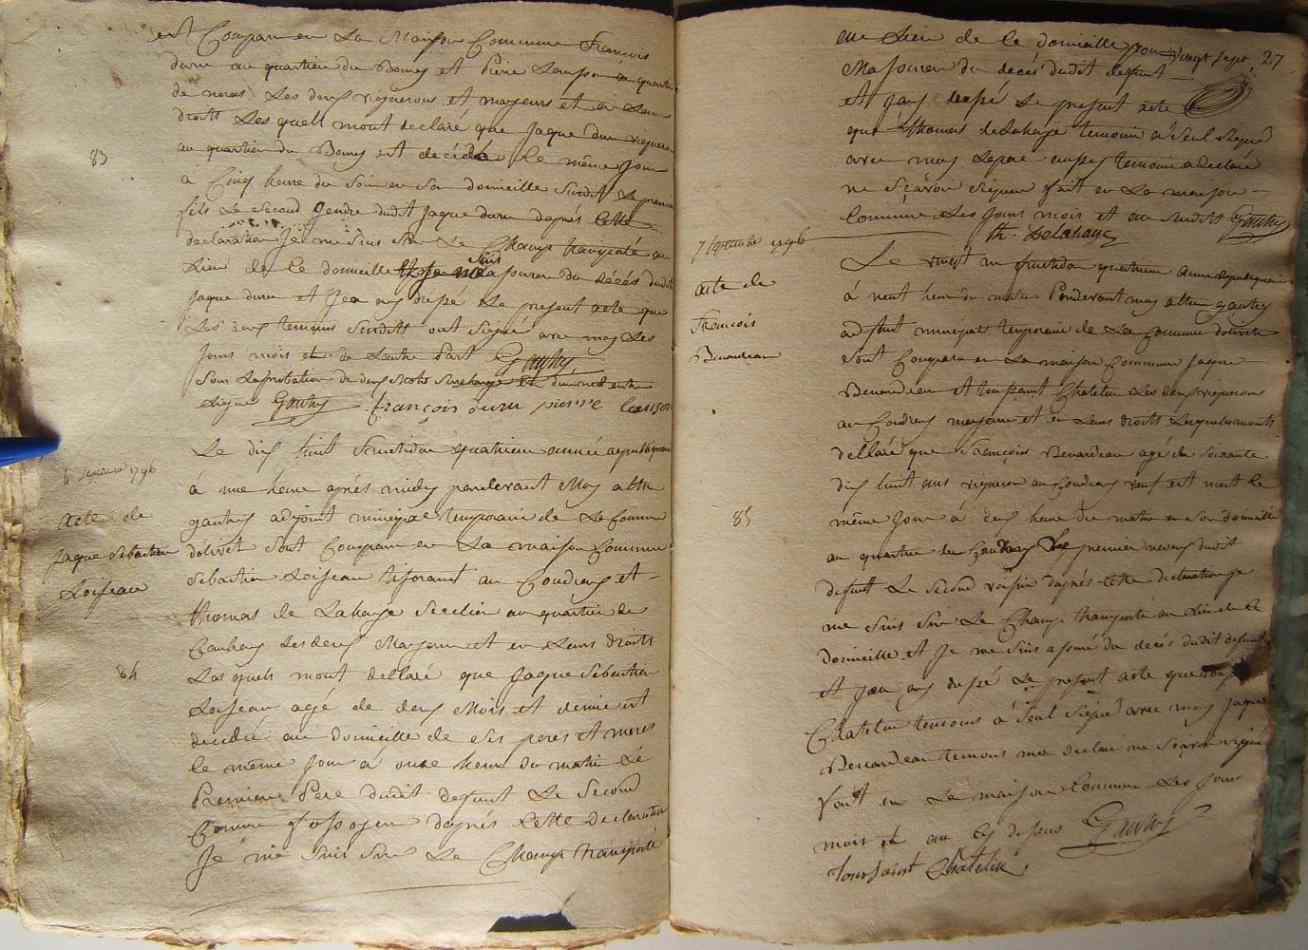 est Comparu en La Maison Commune François
duru au quartier du Bourg et Piere Loison au quartier
de Les deux vignerons et majeurs et en Leur
droits Les quels mont declaré que Jaque duru vigneron
au quartier du Bourg est decédé Le même Jour
83
a Cinq heure du Soir en son domicille Surdit Le premier
fils Le Second Gendre dudit Jaque duru dapres Cette
declaration Je me suis sur Le Champ transporté au
Lieu de Ce domicille suis assurer du décés dudit
Jaque duru et Jea ay dressé Le present acte que
Les deux temoins Surdits ont Signé avec moy Les
Jours mois et de Lautre Part Gauthey
Sous Laprobation de deux mots Surcharge et
Signé Gauthey François duru pierre loison
Le dix huit fructidor quatrieme année republiquaine
4 septembre 1796
à une heure après midy pardevant Moy
acte de
gauthey adjoint municipal temporaire de La Commune
Jaque Sebastien
dolivet Sont Comparu en La maison Commune
Loiseau
Sebastien Loiseau au Coudray et
thomas de Lahaye au quartier de
Les deux Majeurs et en Leurs droits
84
Les quels mont dellaré que Jaque Sebastien
Loiseau agé de deux Mois et demie est
decédé au domicille de Ses peres et meres
le même Jour à onze heure du matin Le
Premier Pere dudit defunt Le Second
dapres Cette Declaration
Je me suis sur Le Champ transporté
au Lieu de Ce domicille pour vingt sept 27
Massurer du decés dudit defunt
et Jay dressé Le present acte
que thomas delahaye temoin a Seul Signé
avec moy Le pere aussy temoin a declaré
ne Sçavoir Signer fait en La maison
Commune Les Jours mois et an Susdits Gauthey
th. Delahaye
7 septembre 1796
Le vingt un fructidor quatrieme année republiquaine
acte de
à neuf heure du matin Pardevant moy gauthey
François
adjoint municipal temporaire de La Commune dolivet
Benardeau
Sont Comparu en La maison Commune Jaque
Benardeau et toussaint Chatelin Les deux vignerons
au Coudray majeurs et en Leurs droits Lesquels mont
dellaré que François Benardeau agé de Soixante
dix huit ans vigneron au Coudray veuf est mort le
85
même Jour à deux heure du matin en son domicille
au quartier du Coudray Le premier neveu dudit
defunt Le Second voisin dapres Cette declaration Je
me suis sur Le Champ transporté au Lieu de Ce
domicille et Je me suis assuré du decés dudit defunt
et Jea ay dressé Le present acte que toussaint
Chatelin temoins a Seul Signé avec moy Jaque
Benardeau temoins ma declaré ne Sçavoir Signer
Fait en La maison Commune Les Jour
mois et an Cy dessus Gauthey
toussaint Chatelin